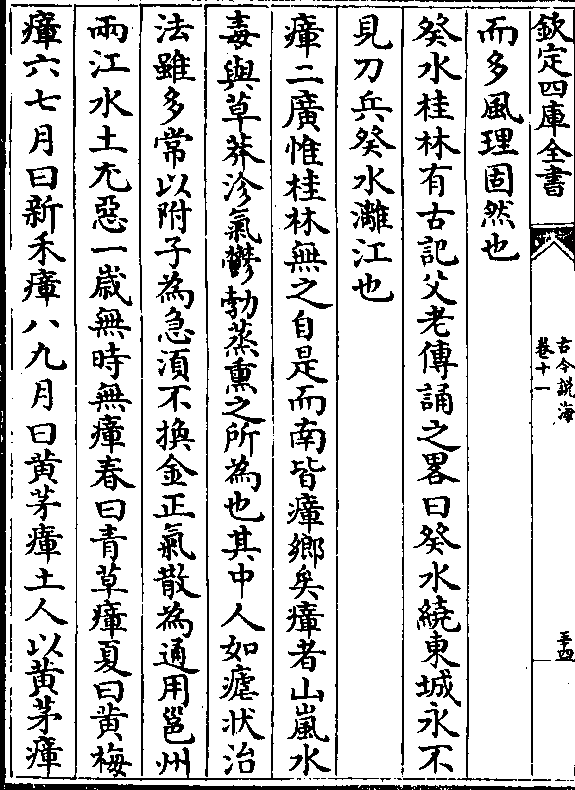 欽定四庫全書
古今説海
卷十一
三十四
而多風理固然也
癸水桂林有古記父老傳誦之畧曰癸水繞東城永不
見刀兵癸水灕江也
瘴二廣惟桂林無之自是而南皆瘴鄉矣瘴者山嵐水
毒與草莽沴氣鬱勃蒸熏之所為也其中人如瘧狀治
法雖多常以附子為急須不換金正氣散為通用邕州
兩江水土尤惡一歲無時無瘴春曰青草瘴夏曰黃梅
瘴六七月曰新禾瘴八九月曰黃茅瘴土人以黃茅瘴